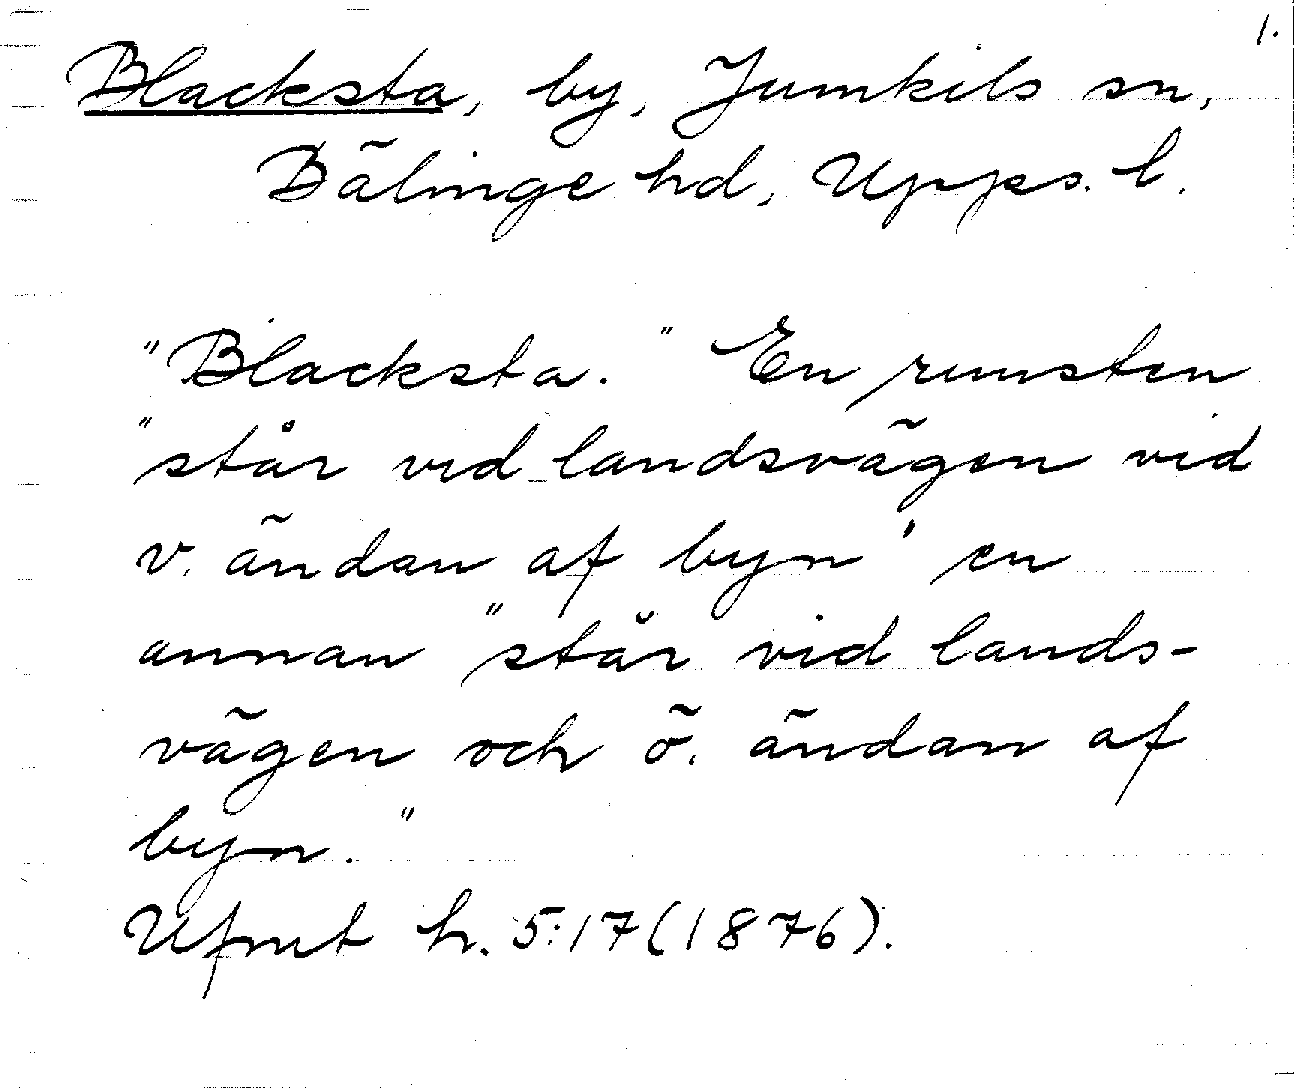 1.
Blacksta, by, Jumkils sn,
Bälinge hd, Upps. l.
"Blacksta." En runsten
"står vid landsvägen vid
v. ändan af byn" en
annan "står vid lands-
vägen och ö. ändan af
byn."
Ufmt h. 5:17 (1876).